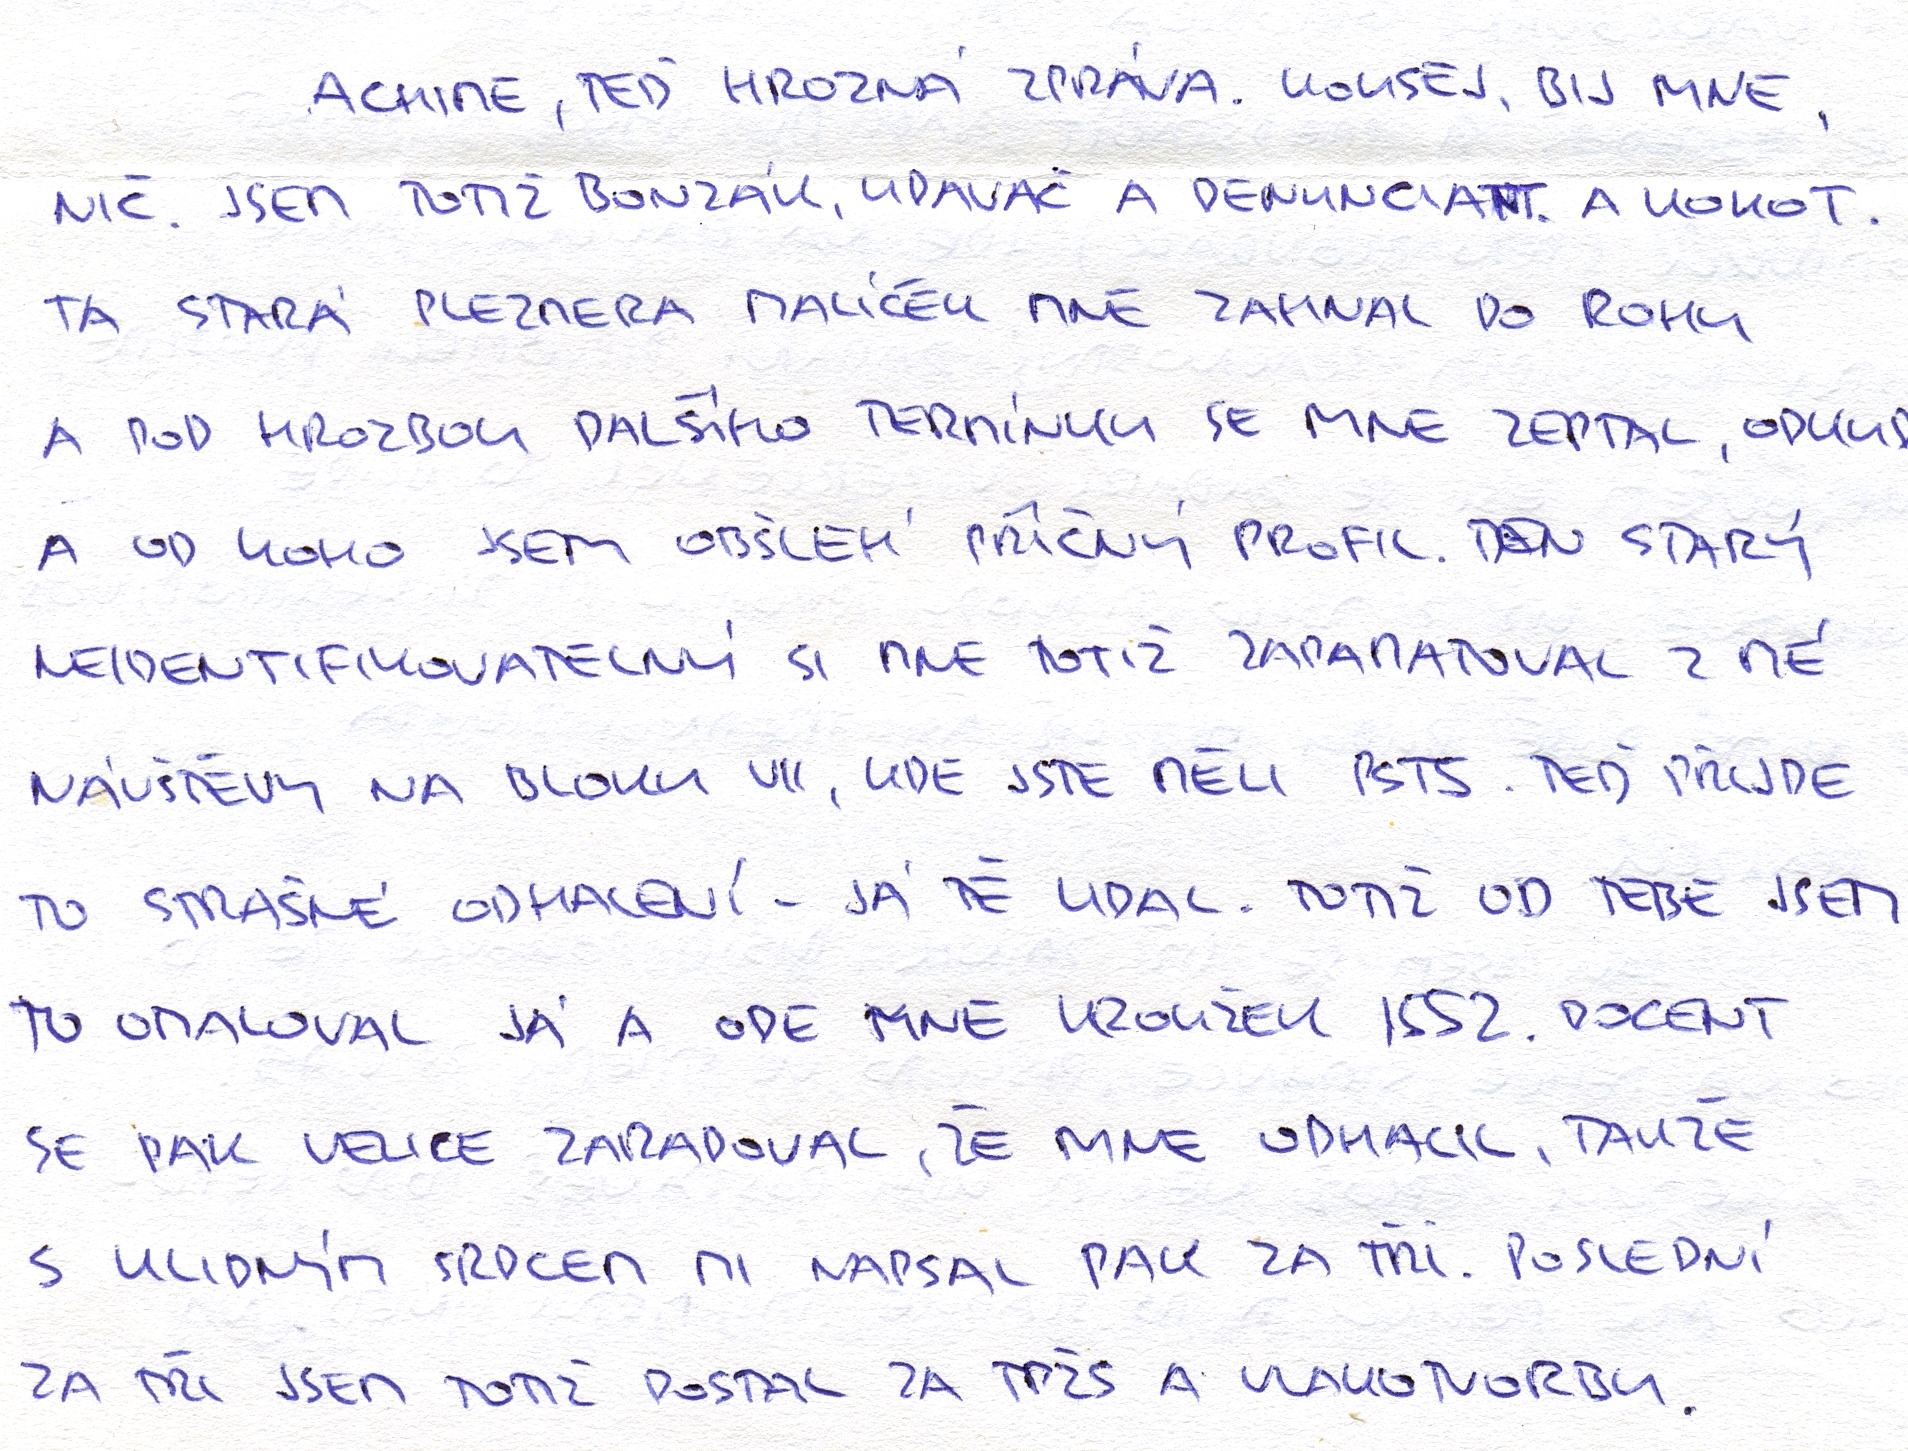 ACHIME, TEĎ HROZNÁ ZPRÁVA. KOUSEJ, BIJ MNE,
NIČ. JSEM TOTIŽ BONZÁK, UDAVAČ A DENUNCIANT. A KOKOT.
TA STARÁ PLEZMERA MALÍČEK MNE ZAHNAL DO ROHU
A POD HROZBOU DALŠÍHO TERMÍNKU SE MNE ZEPTAL, ODKUD
A OD KOHO JSEM OBŠLEHL PŘÍČNÝ PROFIL. TEN STARÝ
NEIDENTIFIKOVATELNÝ SI MNE TOTIŽ ZAPAMATOVAL Z MÉ
NÁVŠTĚVY NA BLOKU VII, KDE JSTE MĚLI PSTS. TEĎ PŘIJDE
TO STRAŠNÉ ODHALENÍ - JÁ TĚ UDAL. TOTIŽ OD TEBE JSEM
TO OMALOVAL JÁ A ODE MNE KROUŽEK 1552. DOCENT
SE PAK VELICE ZARADOVAL, ŽE MNE ODHALIL, TAKŽE
S KLIDNÝM SRDCEM MI NAPSAL PAK ZA TŘI. POSLEDNÍ
ZA TŘI JSEM TOTIŽ DOSTAL ZA TPŽS A VLAKOTVORBU.